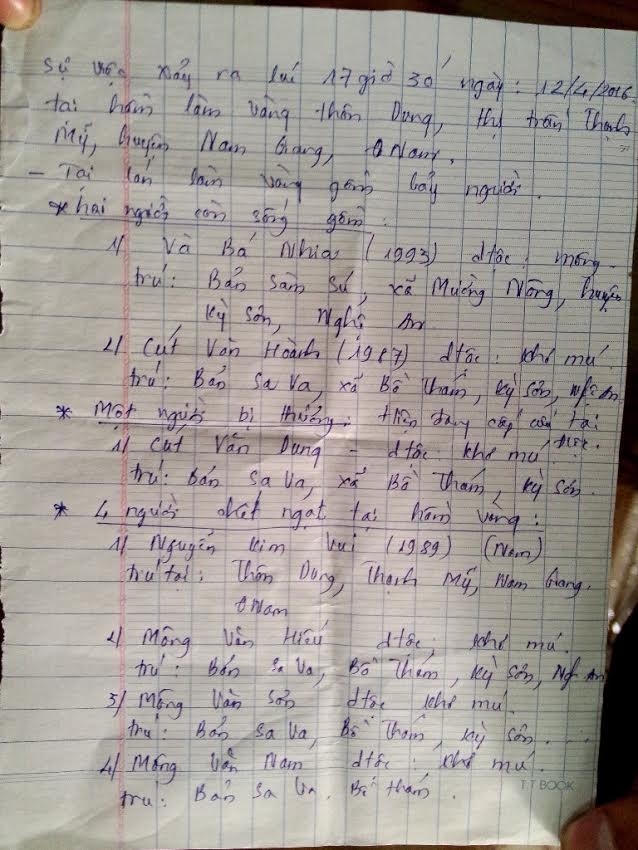 Sự việc xảy ra lúc 17 giờ 30 ngày: 12/4/2016
tại hầm làm vàng thôn Dung, thị trấn Thạnh
Mỹ, huyện Nam Giang, QNam.
- Tại lán làm vàng gồm bảy người.
* hai người còn sống gồm:
1/ Và Bá Nhia (1993) dtộc: mông.
trú: Bản Sàn Sú, xã Mường Nông, huyện
Kỳ Sơn, Nghệ An
2/ Cụt Văn Hoành (1987) dtộc: khơ mú.
trú: Bản Sa Va, xã Bồ Thắm, Kỳ Sơn, Nghệ An
* Một người bị thương: hiện đang cấp cứu tại
1/ Cụt Văn Dung - dtộc: khơ mú
trú: Bản Sa Va, xã Bồ Thắm, Kỳ Sơn.
* 4 người chết ngạt tại hầm vàng:
1/ Nguyễn Kim Vui (1989) (Nam)
trú tại: Thôn Dung, Thạnh Mỹ, Nam Giang.
QNam
2/ Mông Văn Hiếu dtộc: khơ mú.
trú: Bản Sa Va, Bồ Thắm, Kỳ Sơn, Ng An
3/ Mông Văn Sơn dtộc khơ mú.
trú: Bản Sa Va, Bồ Thắm, Kỳ Sơn...
4/ Mông Văn Nam dtộc: khơ mú.
trú: Bản Sa Va. Bồ Thắm.
TT BOOK